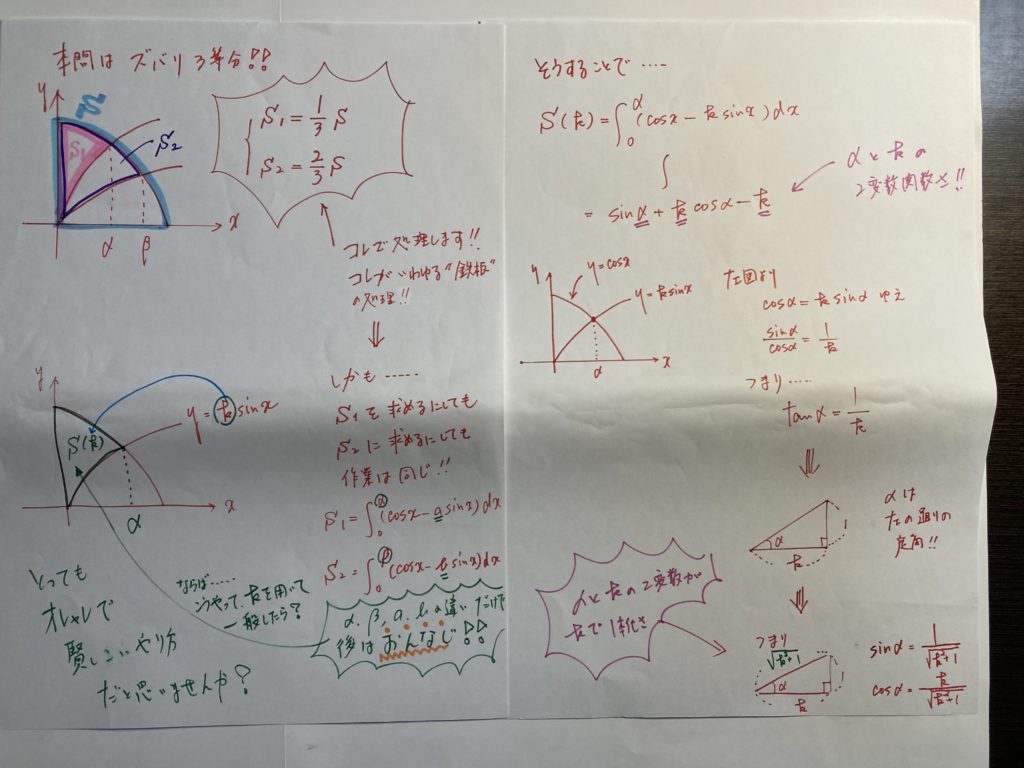 本問は ズバリ3等分!!
y
S
S1
S2
α
β
x
S1 = 1/3 S
S2 = 2/3 S
コレで処理します!!
コレがいわゆる"鉄板"
の処理!!
⇓
しかも……
S1を求めるにしても
S2に求めるにしても
作業は同じ!!
S1 = ∫₀^α (cosx − a sinx)dx
S2 = ∫₀^β (cosx − b sinx)dx
y
S(k)
y = k sinx
α
x
α、β、a、bの違いだけで
後はおんなじ!!
ならば……
こうやって、kを用いて
一般したら?
とっても
オシャレで
賢しこいやり方
だと思いませんか?
そうすることで……
S(k) = ∫₀^α (cosx − k sinx)dx
∫
= sinα + k cosα − k
αとkの
2変数関数さ!!
y
y = cosx
y = k sinx
α
x
左図より
cosα = k sinα ゆえ
sinα/cosα = 1/k
つまり……
tanα = 1/k
⇓
α
k
1
αは
左の通りの
定角!!
⇓
αとkの2変数が
kで1本化さ
つまり
√k²+1
α
k
1
sinα = 1/√k²+1
cosα = k/√k²+1